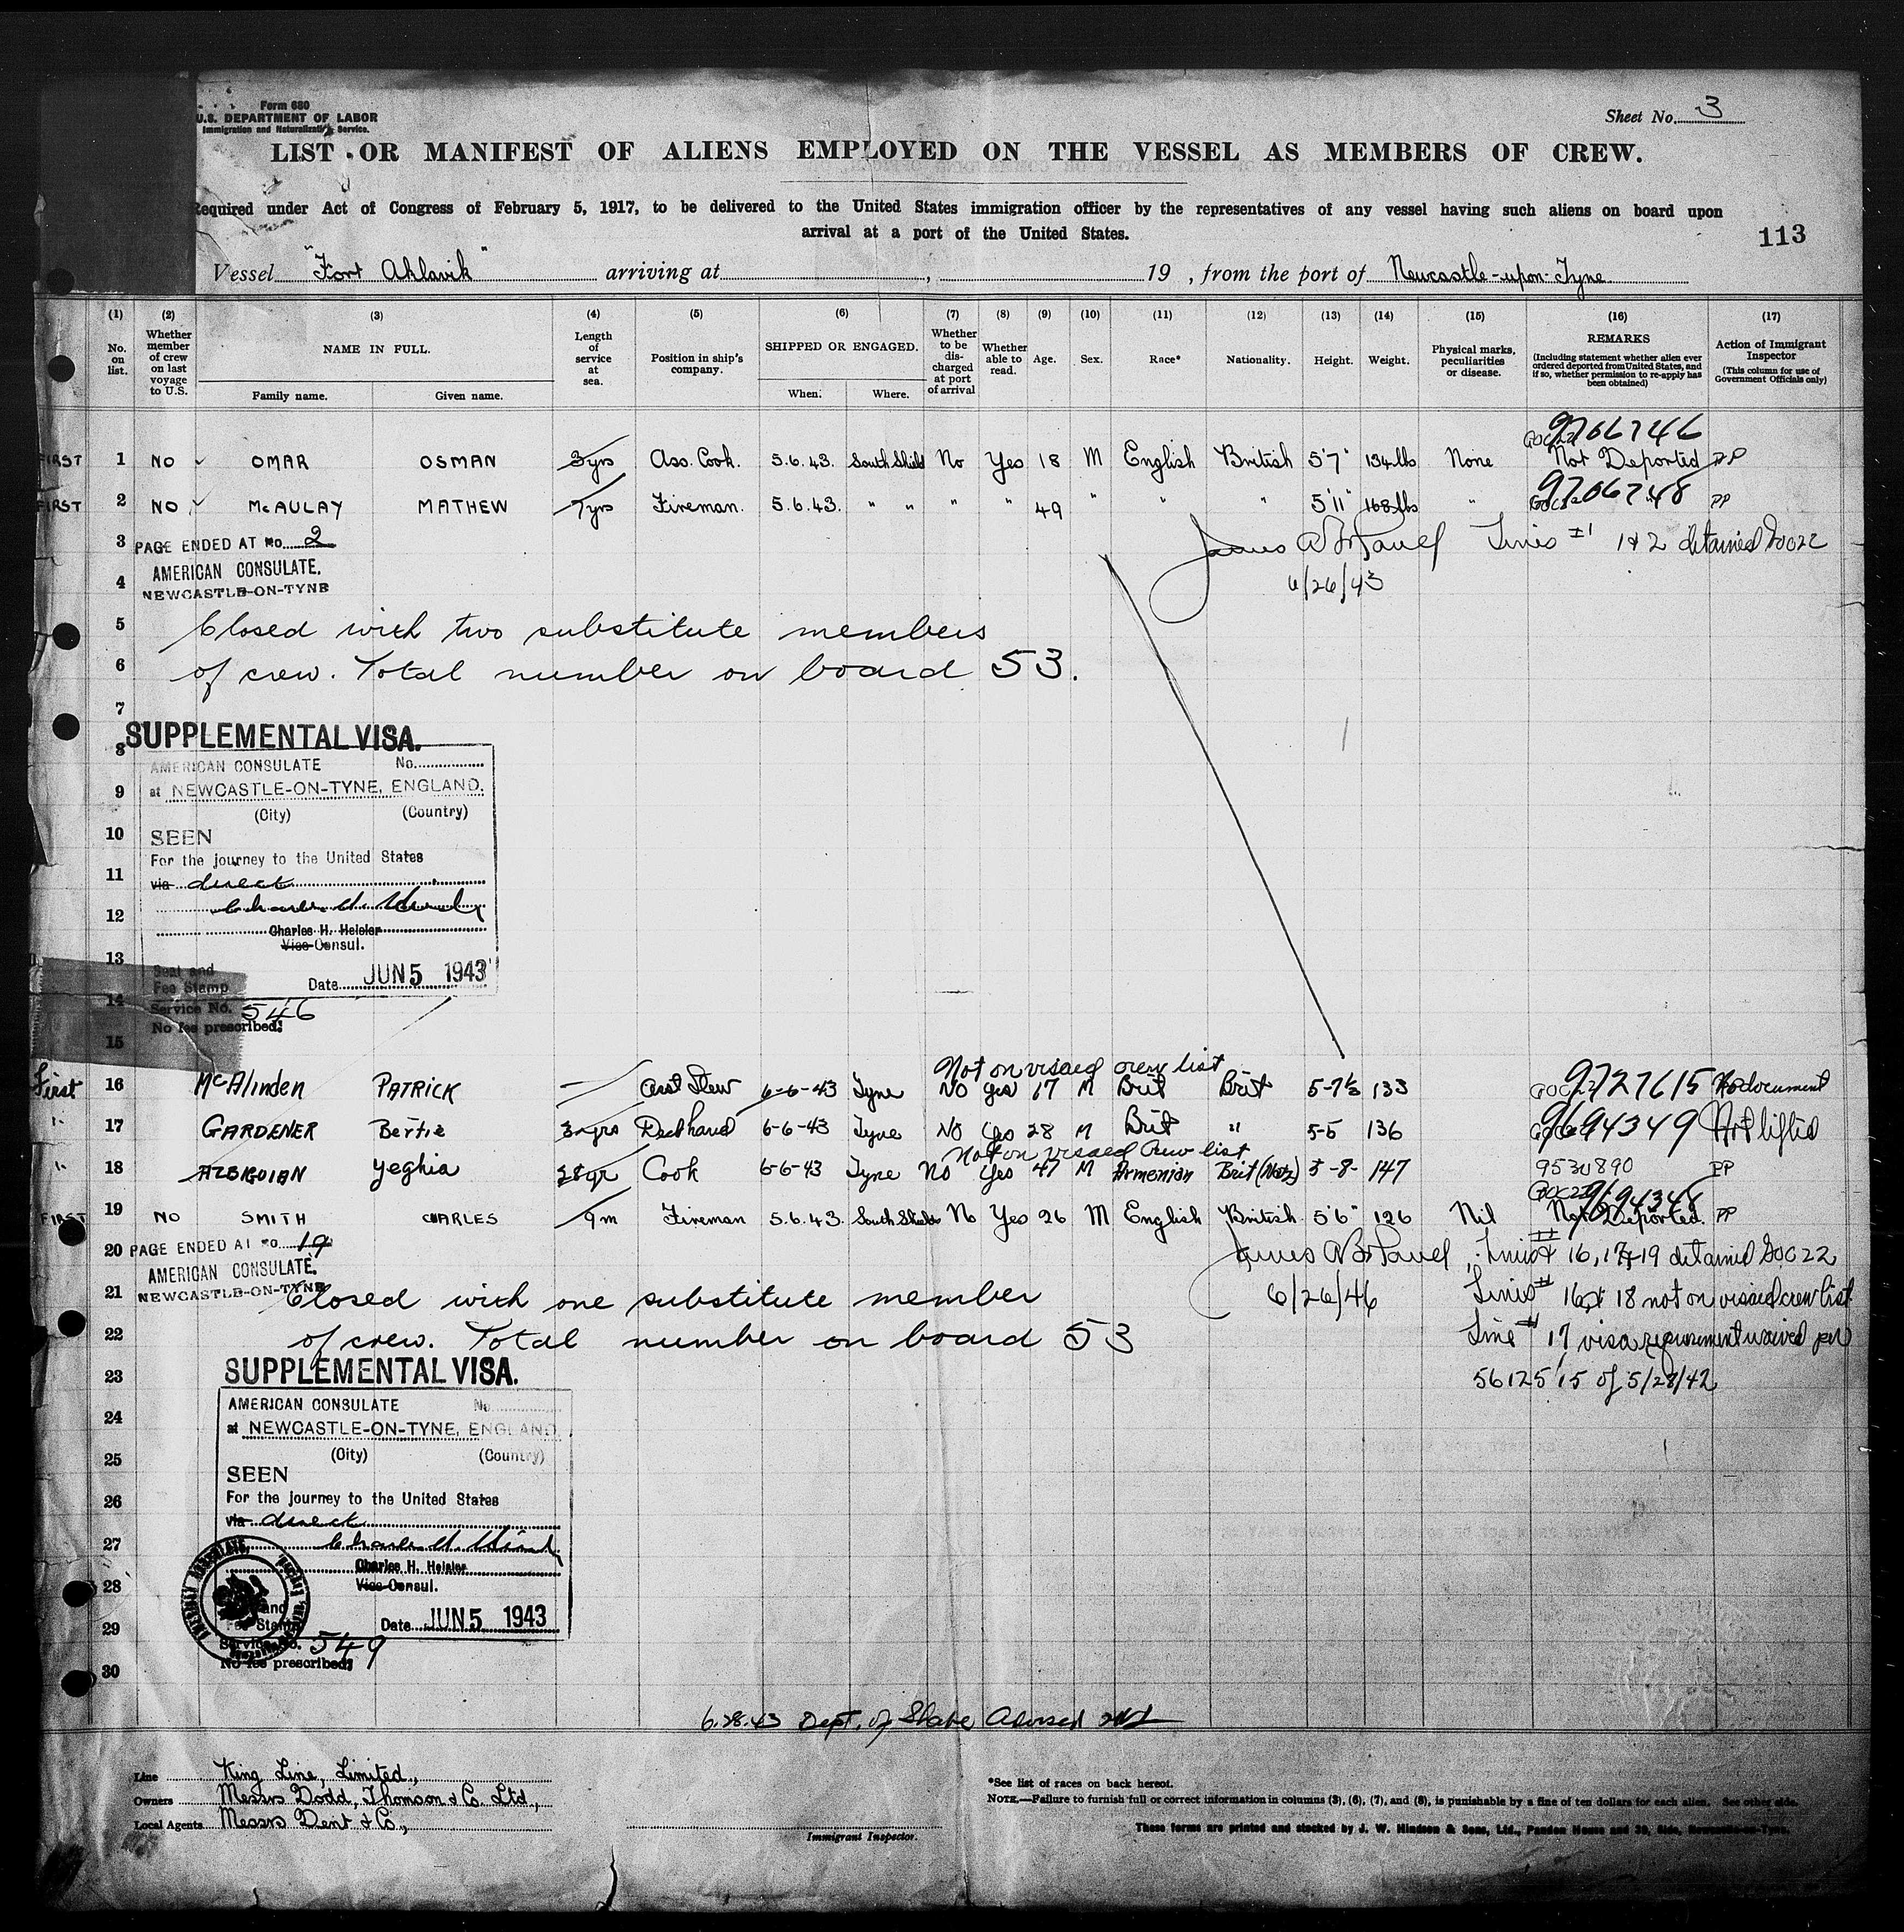 Form 680
U.S. DEPARTMENT OF LABOR
Immigration and Naturalization Service.
Sheet No. 3
LIST OR MANIFEST OF ALIENS EMPLOYED ON THE VESSEL AS MEMBERS OF CREW.
Required under Act of Congress of February 5, 1917, to be delivered to the United States immigration officer by the representatives of any vessel having such aliens on board upon
arrival at a port of the United States.
113
Vessel "Fort Aklavik" arriving at , 19 , from the port of Newcastle-upon-Tyne
(1) (2) (3) (4) (5) (6) (7) (8) (9) (10) (11) (12) (13) (14) (15) (16) (17)
No. on list.
Whether member of crew on last voyage to U.S.
NAME IN FULL.
Family name. Given name.
Length of service at sea.
Position in ship's company.
SHIPPED OR ENGAGED.
When. Where.
Whether to be discharged at port of arrival
Whether able to read.
Age.
Sex.
Race*
Nationality.
Height.
Weight.
Physical marks, peculiarities or disease.
REMARKS
(Including statement whether alien ever ordered deported from United States, and if so, whether permission to re-apply has been obtained)
Action of Immigrant Inspector
(This column for use of Government Officials only)
9706746
FIRST 1 NO OMAR OSMAN 3yrs Ass. Cook. 5.6.43. South Shields No Yes 18 M English British 5'7" 134lbs None Not Deported PP
9706748
FIRST 2 NO McAULAY MATHEW 7yrs Fireman. 5.6.43. " " " " 49 " " " 5'11" 168lbs " " PP
3 PAGE ENDED AT No. 2
Lines #1 1&2 detained
AMERICAN CONSULATE.
4 NEWCASTLE-ON-TYNE
6/26/43
5 Closed with two substitute members
6 of crew. Total number on board 53.
7
SUPPLEMENTAL VISA.
8
AMERICAN CONSULATE No.
9 at NEWCASTLE-ON-TYNE, ENGLAND.
(City) (Country)
10 SEEN
For the journey to the United States
11 via direct
12
Charles H. Heisler
Vice Consul.
13
Seal and
Fee Stamp
Date JUN 5 1943
14
Service No. 546
No fee prescribed.
15
Not on visaed crew list
First 16 McAlinden PATRICK — Asst Stew 6-6-43 Tyne No Yes 17 M Brit Brit 5-7½ 133 9727615 No document
" 17 GARDENER Bertie 3 yrs Deckhand 6-6-43 Tyne No Yes 28 M Brit " 5-5 136 9694349
Not on visaed crew list
" 18 ALBIGOIAN Yeghia 28yr Cook 6-6-43 Tyne No Yes 47 M Armenian Brit (Natz) 5-8- 147 9530890 PP
9694348
FIRST 19 NO SMITH CHARLES 9m Fireman 5.6.43. South Shields No Yes 26 M English British. 5'6" 126 Nil Not Deported. PP
20 PAGE ENDED AT No. 19
Lines # 16, 17 & 19 detained
AMERICAN CONSULATE.
NEWCASTLE-ON-TYNE
21 Closed with one substitute member
6/26/46
Lines # 16 & 18 not on visaed crew list
22 of crew. Total number on board 53
Line # 17 visa requirement waived per
SUPPLEMENTAL VISA.
23
56125/15 of 5/28/42
AMERICAN CONSULATE No.
24
at NEWCASTLE-ON-TYNE, ENGLAND
25 (City) (Country)
SEEN
26 For the journey to the United States
via direct
27
Charles H. Heisler
28 Vice Consul.
Seal and
Fee Stamp
Date JUN 5 1943
29
Service No. 549
No fee prescribed.
30
6.28.43 Dept. of State Advised
Line King Line, Limited.,
Owners Messrs Dodd, Thomson & Co. Ltd.,
Local Agents Messrs Dent & Co.,
Immigrant Inspector.
*See list of races on back hereof.
NOTE.—Failure to furnish full or correct information in columns (3), (6), (7), and (8), is punishable by a fine of ten dollars for each alien. See other side.
These forms are printed and stocked by J. W. Hindson & Sons, Ltd., Pandon House and 39, Side, Newcastle-on-Tyne.